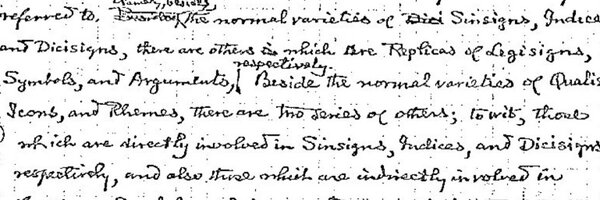 Namely, besides
referred to. the normal varieties of Sinsigns, Indices
and Dicisigns, there are others which are Replicas of Legisigns,
respectively.
Symbols, and Arguments, Beside the normal varieties of Qualis
Icons, and Rhemes, there are two series of others; to wit, those
which are directly involved in Sinsigns, Indices, and Dicisigns
respectively, and also those which are indirectly involved in